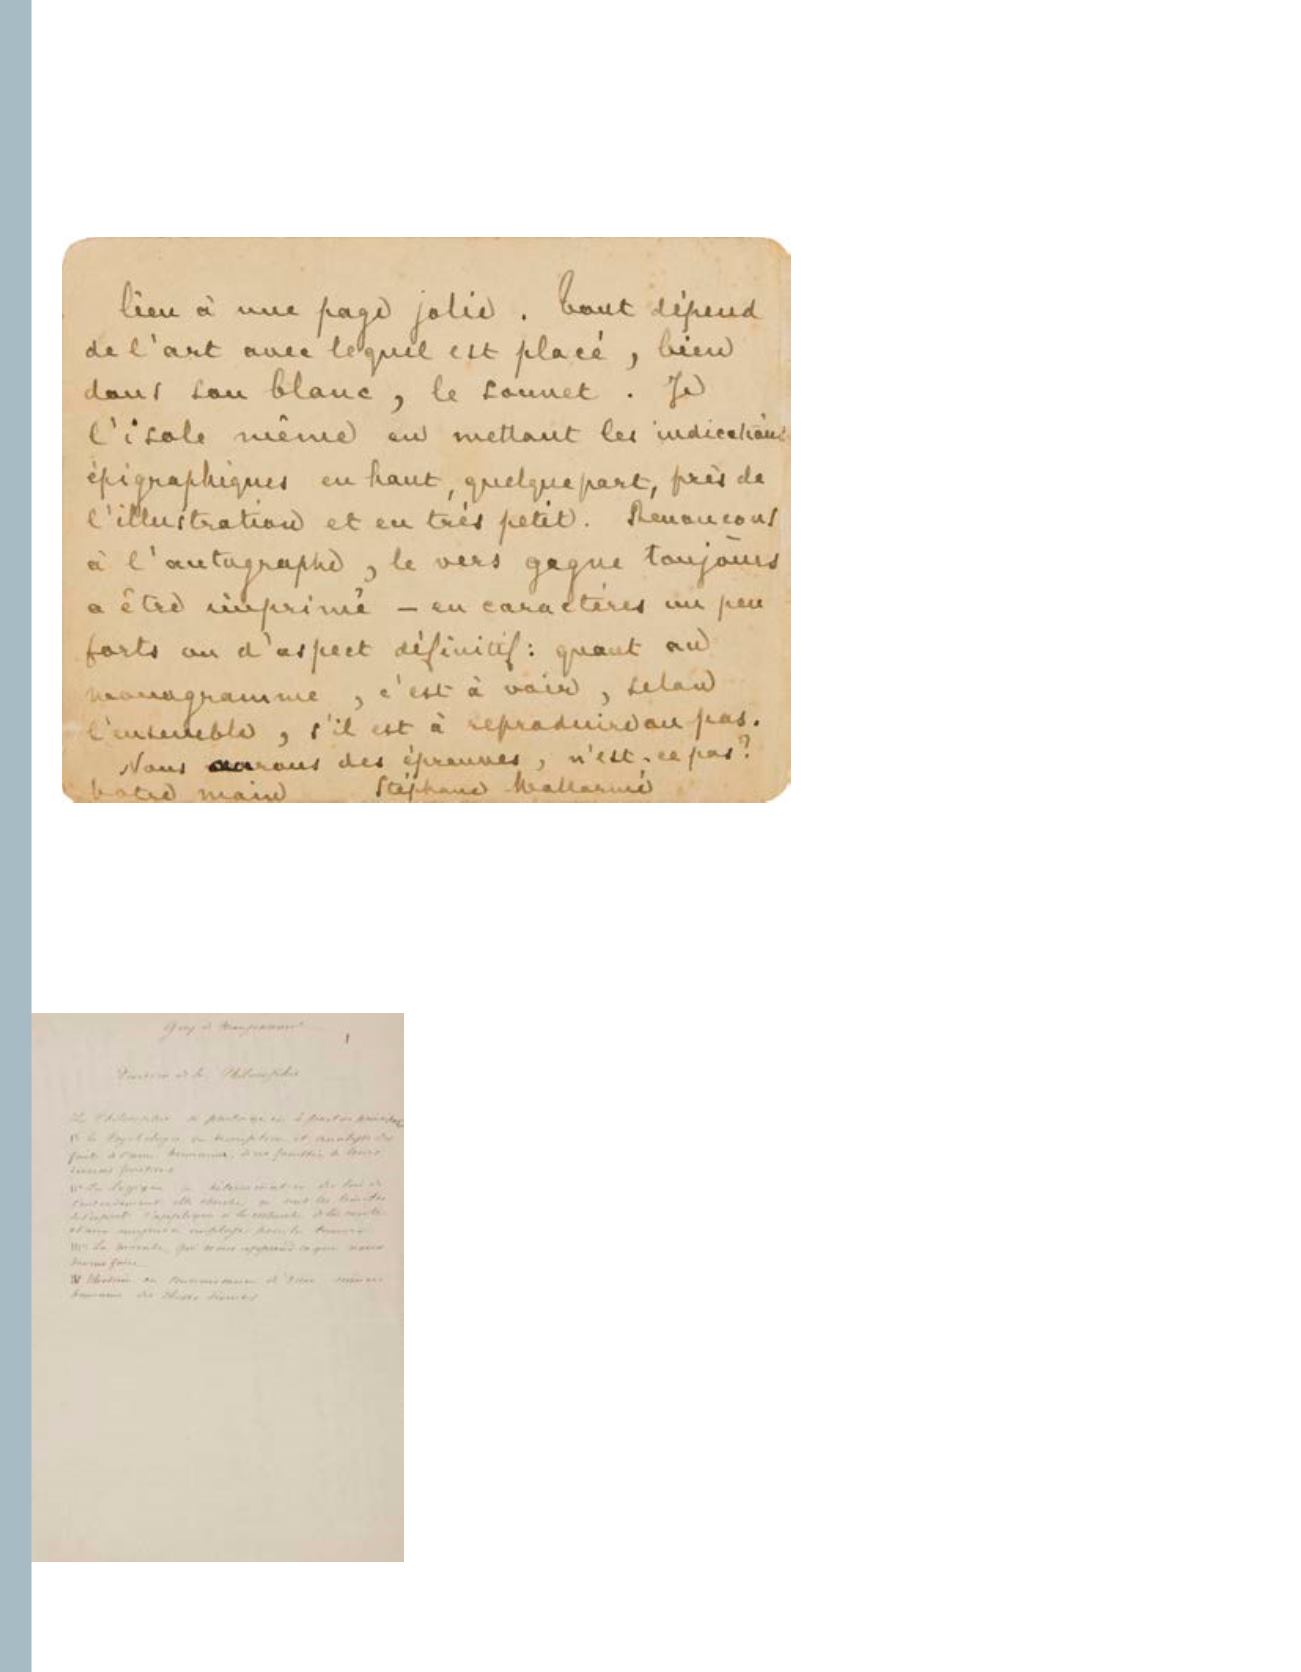 lieu à une page jolie. Tout dépend
de l'art avec lequel est placé, bien
dans son blanc, le sonnet. Je
l'isole même en mettant les indications
épigraphiques en haut, quelque part, près de
l'illustration et en très petit. Renonçons
à l'autographe, le vers gagne toujours
a être imprimé — en caractères un peu
forts ou d'aspect définitif: quant au
monogramme, c'est à voir, selon
l'ensemble, s'il est à reproduire ou pas.
Nous aurons des épreuves, n'est-ce pas?
Votre main Stéphane Mallarmé
Guy de Maupassant
1
Division de la Philosophie
La Philosophie se partage en 4 parties
la Psychologie ou description et analyse des
humaine, de ses facultés & leurs
La Logique ou détermination des lois de
l'entendement elle
l'esprit s'applique à la recherche de la vérité
La morale, qui nous apprend ce que nous
devons faire
IV
humaine